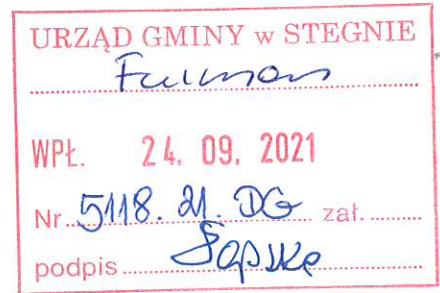 URZĄD GMINY w STEGNIE
WPŁ. 24. 09. 2021
Nr 5118. 21. DG zał.
podpis